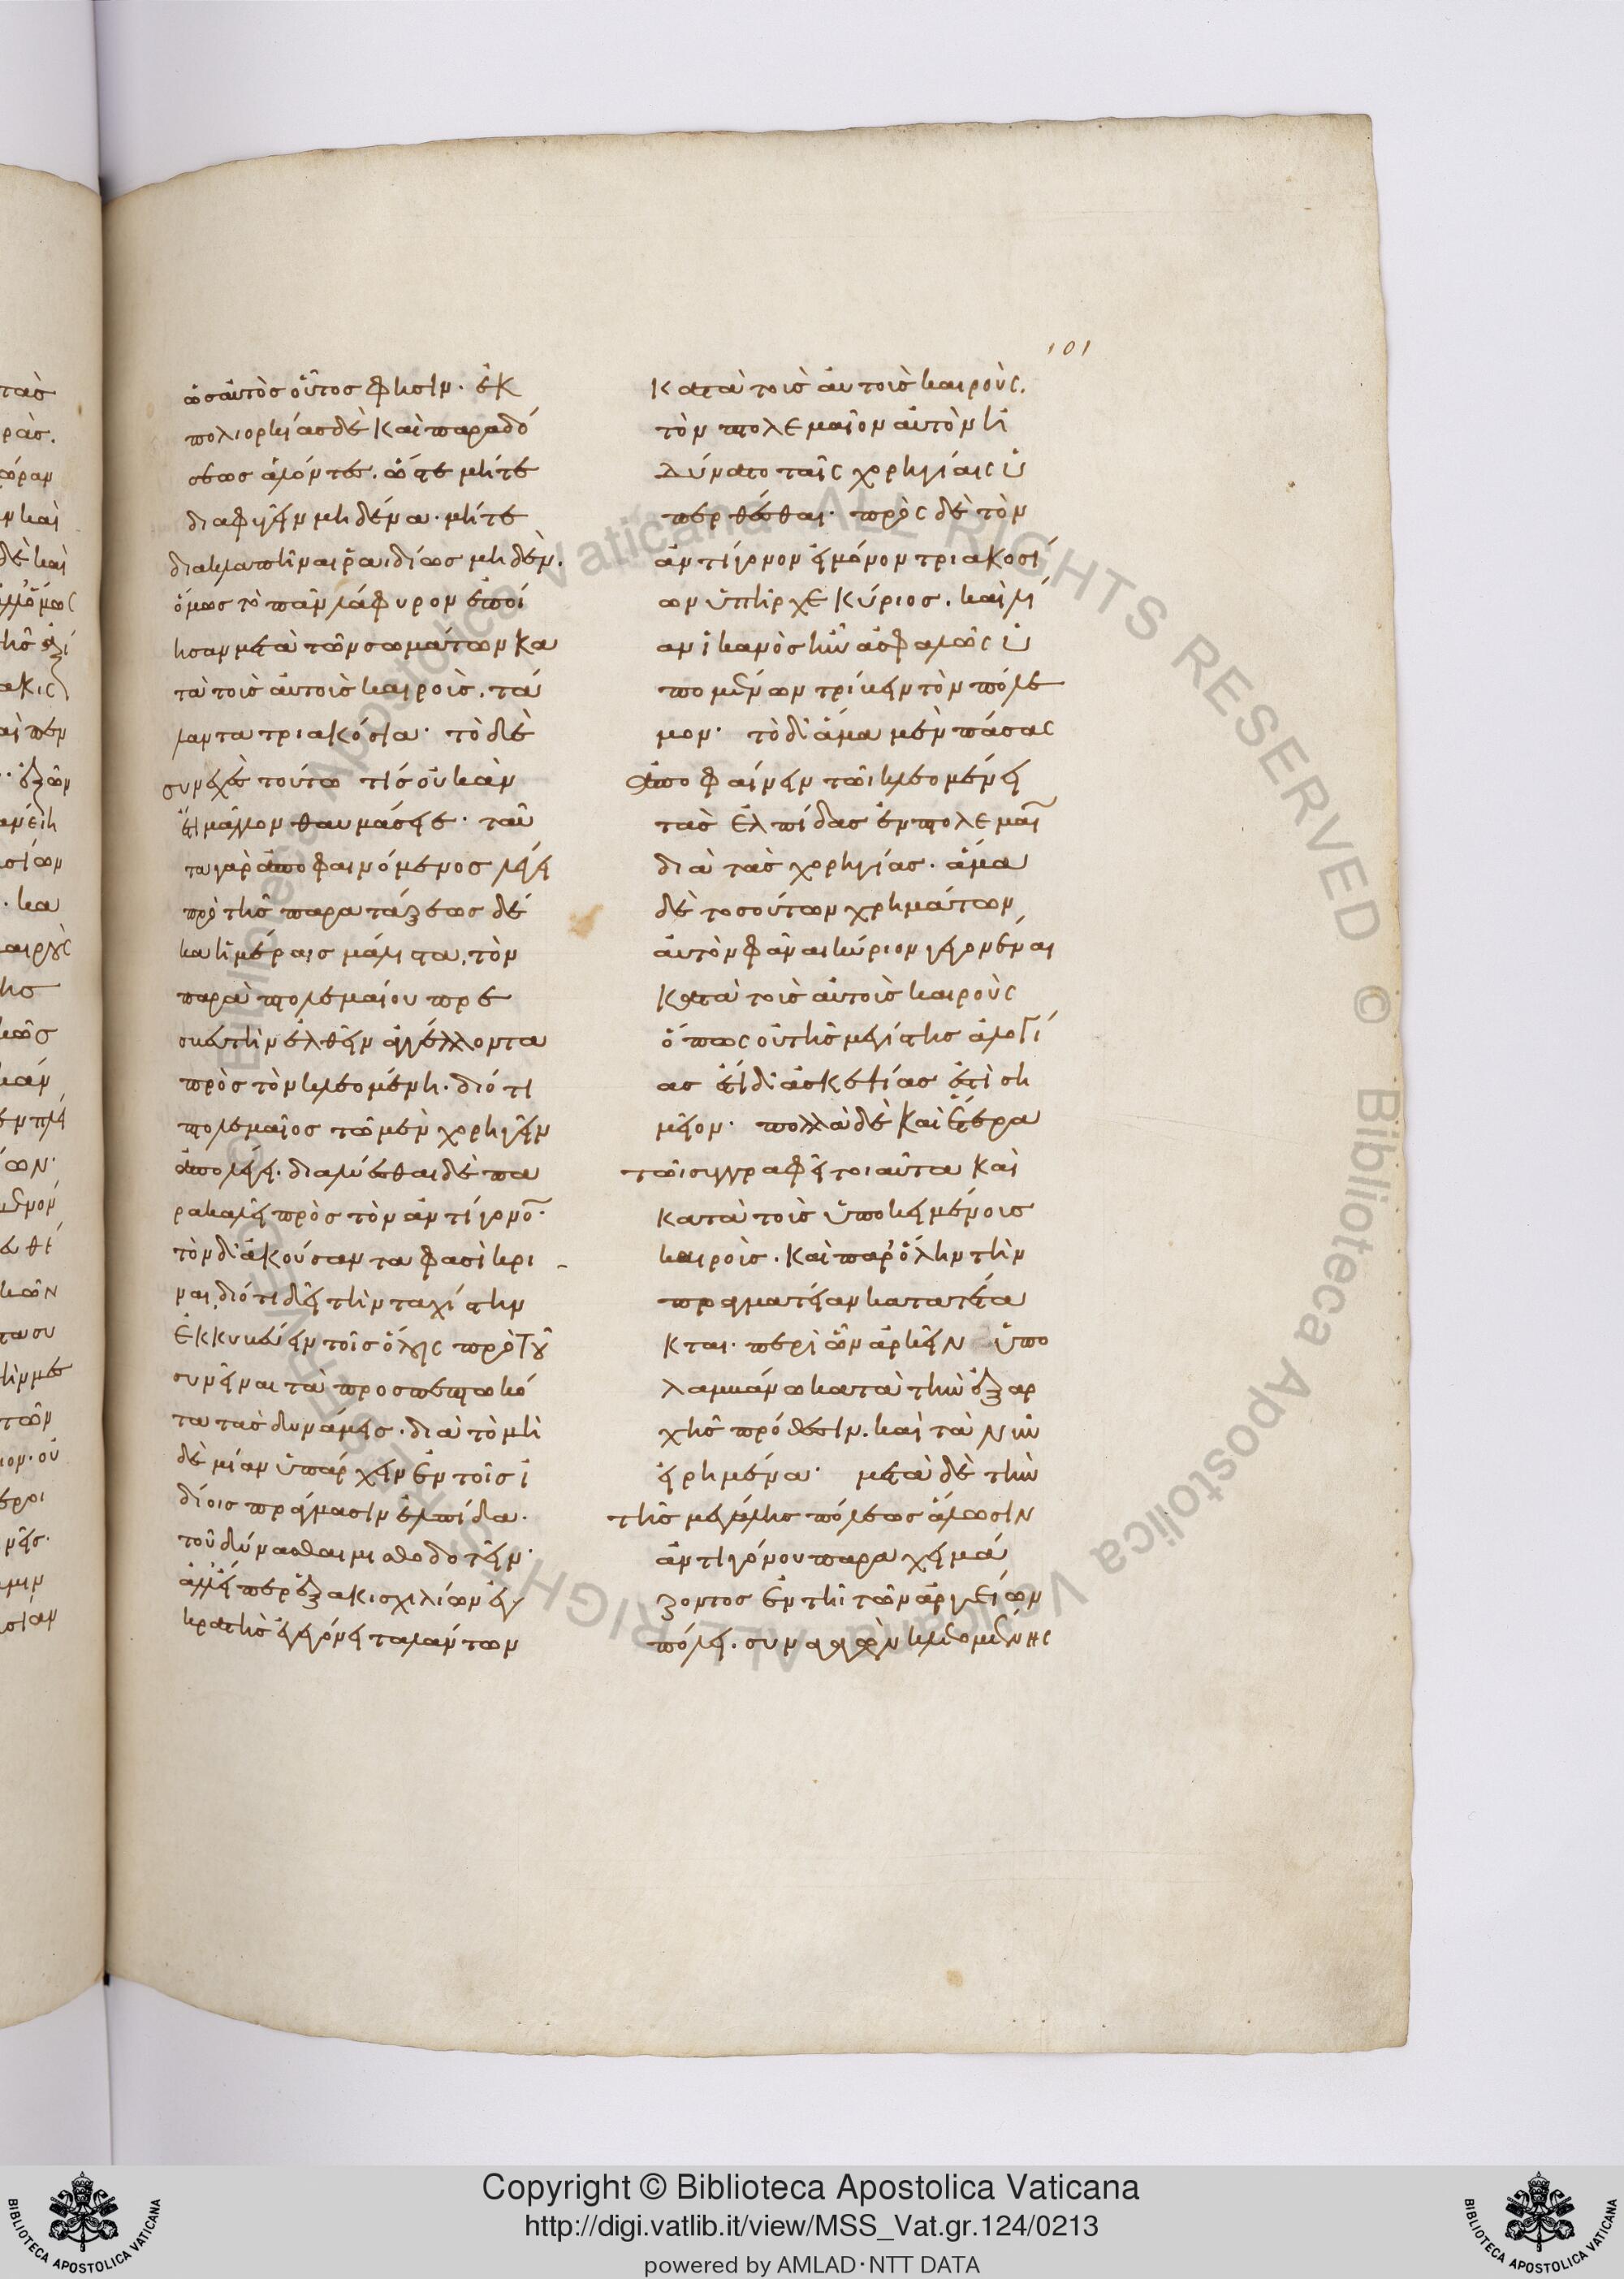 ὡς αὐτὸς οὗτος φησὶν· ἐκ
πολιορκίας δὲ καὶ παραδό
σεως ἁλόντες. ὥστε μήτε
διαφυγεῖν μηδένα· μήτε
διακλαπῆναι ῥαιδίως μηδὲν.
ὅμως τὸ πᾶν λάφυρον ἐποί
ησαν μετὰ τῶν σωμάτων κα
τὰ τοὺς αὐτοὺς καιροὺς. τά
λαντα τριακόσια· τὸ δὲ
συνεχὲς τούτω τίς οὐκ ἂν
ἔτι μᾶλλον θαυμάσειε· ταῦ
τα γὰρ ἀποφαινόμενος λέγει
πρὸ τῆς παρατάξεως δέ
κα ἡμέραις μάλιστα, τὸν
παρὰ πτολεμαίου πρε
σβευτὴν ἐλθεῖν ἀγγέλλοντα
πρὸς τὸν κλεομένη· διότι
πτολεμαῖος τῶ μὲν χορηγεῖν
ἀπολέγει· διαλύεσθαι δὲ πα
ρακαλεῖ πρὸς τὸν ἀντίγονο̅·
τὸν δ' ἀκούσαντα φασὶ κρι
ναι, διότι δεῖ τὴν ταχίστην
ἐκκυβεύειν τοῖς ὅλοις πρὸ τοῦ
συνεῖναι τὰ προσπεπτωκό
τα τὰς δυνάμεις· διὰ τὸ μὴ
δὲ μίαν ὑπάρχειν ἐν τοῖς ἰ
δίοις πράγμασιν ἐλπίδα·
τοῦ δύνασθαι μισθοδοτεῖν·
ἀλλ' εἴπερ ἑξακισχιλίων ἐγ
κρατὴς ἐγεγόνει ταλάντων
101
κατὰ τοὺς αὐτοὺς καιροὺς.
τὸν πτολεμαῖον αὐτὸν ἠ
δύνατο ταῖς χορηγίαις ὑ
περθέσθαι· πρὸς δὲ τὸν
ἀντίγονον εἰ μόνον τριακοσί
ων ὑπῆρχε κύριος. καὶ λί
αν ἱκανὸς ἦν ἀσφαλῶς ὑ
πομένων τρίβειν τὸν πόλε
μον· τὸ δ' ἅμα μὲν πάσας
ἀποφαίνειν τῶι κλεομένει
τὰς ἐλπίδας ἐν πτολεμαί
διὰ τὰς χορηγίας· ἅμα
δὲ τοσούτων χρημάτων
αὐτὸν φάναι κύριον γεγονέναι
κατὰ τοὺς αὐτοὺς καιροὺς
ὅπως οὐ τῆς μεγίστης ἀλογί
ας ἔτι δ' ἀσκεψίας ἐστὶ ση
μεῖον· πολλὰ δὲ καὶ ἕτερα
τῶι συγγραφεῖ τοιαῦτα καὶ
κατὰ τοὺς ὑποκειμένους
καιροὺς. καὶ παρ' ὅλην τὴν
πραγματείαν κατατέτα
κται· περὶ ὧν ἀρκεῖν ὑπο
λαμβάνω κατὰ τὴν ἐξ ἀρ
χῆς πρόθεσιν. καὶ τὰ νῦν
εἰρημένα· μετὰ δὲ τὴν
τῆς μεγάλης πόλεως ἅλωσιν
ἀντιγόνου παραχειμά
ζοντος ἐν τῆ τῶν ἀργείων
πόλει. συναγαγὼν κλεομένης